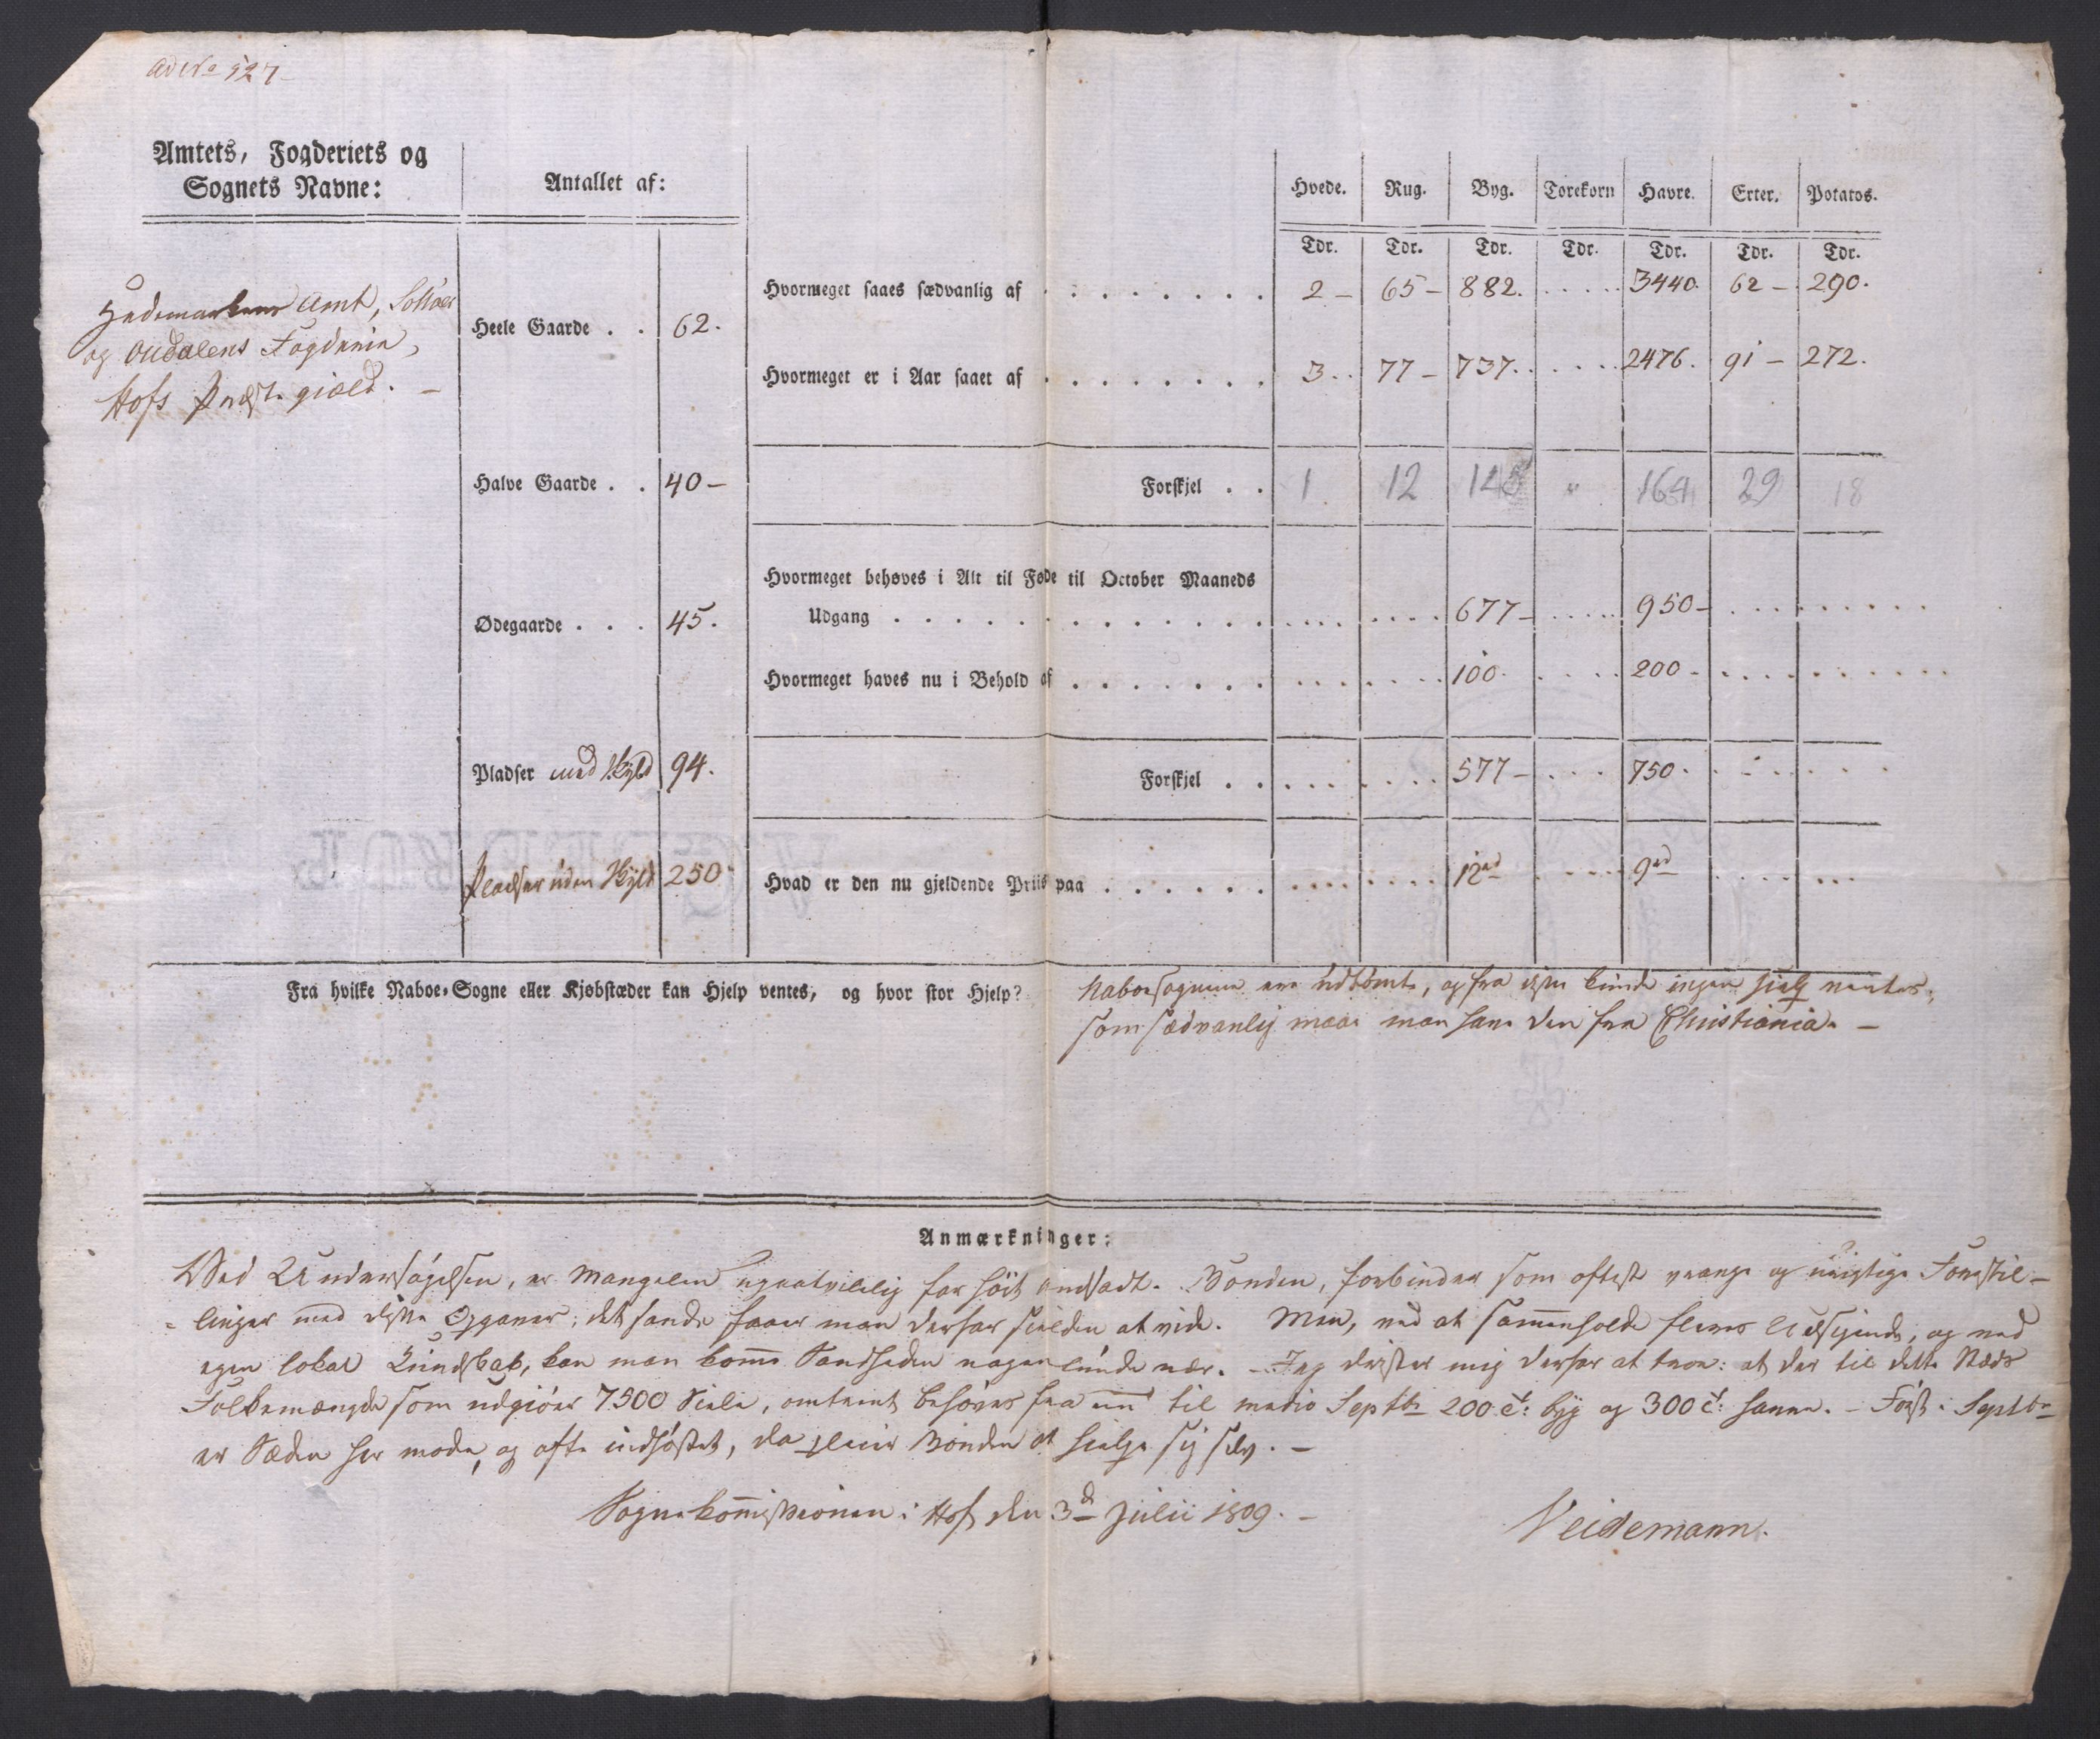 Ad No 527
Amtets, Fogderiets og
Sognets Navne:
Antallet af:
Hvede. Rug. Byg. Torekorn Havre. Erter. Potatos.
Tdr. Tdr. Tdr. Tdr. Tdr. Tdr. Tdr.
Hedemarkens Amt, Solløer
og Oudalens Fogderie,
Hofs Præstegiæld. —
Heele Gaarde . . 62.
Halve Gaarde . . 40 —
Ødegaarde . . . 45.
Pladser med Skyld 94.
Pladser uden Skyld 250
Hvormeget saaes sædvanlig af . . . . . . . 2 — 65 — 882. . . . . . 3440. 62 — 290.
Hvormeget er i Aar saaet af . . . . . . . 3 . . 77 — 737. . . . . . 2476. 91 — 272.
Forskjel . . 1 12 145 " 164 29 18
Hvormeget behøves i Alt til Føde til October Maaneds
Udgang . . . . . . . . . . . . . 677 — . . . . . 950 — . . . . . . . . .
Hvormeget haves nu i Behold af . . . . . . . 100. . . . . 200 — . . . . . . . . .
Forskjel . . . . . . . . . . 577 — . . . 750. . . . . . .
Hvad er den nu gjeldende Priis paa . . . . . . 12rd . . . . . 9rd . . . . . . .
Fra hvilke Naboe-Sogne eller Kjøbstæder kan Hjelp ventes, og hvor stor Hjelp?
Naboesognene ere udtømte, og fra disse kunde ingen Hielp ventes;
som sædvanlig maae man have den fra Christiania. —
Anmærkninger:
Ved Undersøgelsen, er Mangelen ugvatvilelig for høit ansadt. Bonden, forbinder som oftest vrange og urigtige Forestil-
- linger med disse Opgaver; det sande faaer man derfor sielden at vide. Men, ved at sammenholde fleres Udsigende, og ved
egen lokal Kundskab, kan man komme Sandheden nogenlunde nær. — Jeg drister mig derfor at troe: at der til dette Stæds
Folkemængde som udgiøer 7500 Siele, omtrent behøves fra nu til medio Septbr 200 t: byg og 300 t: havre. — Først i Septbr
er Sæden her moden, og ofte indhøstet, da pleier Bonden at hielpe sig selv. —
Sognekommissionen i Hof den 3d Julii 1809. —
Neidemann.